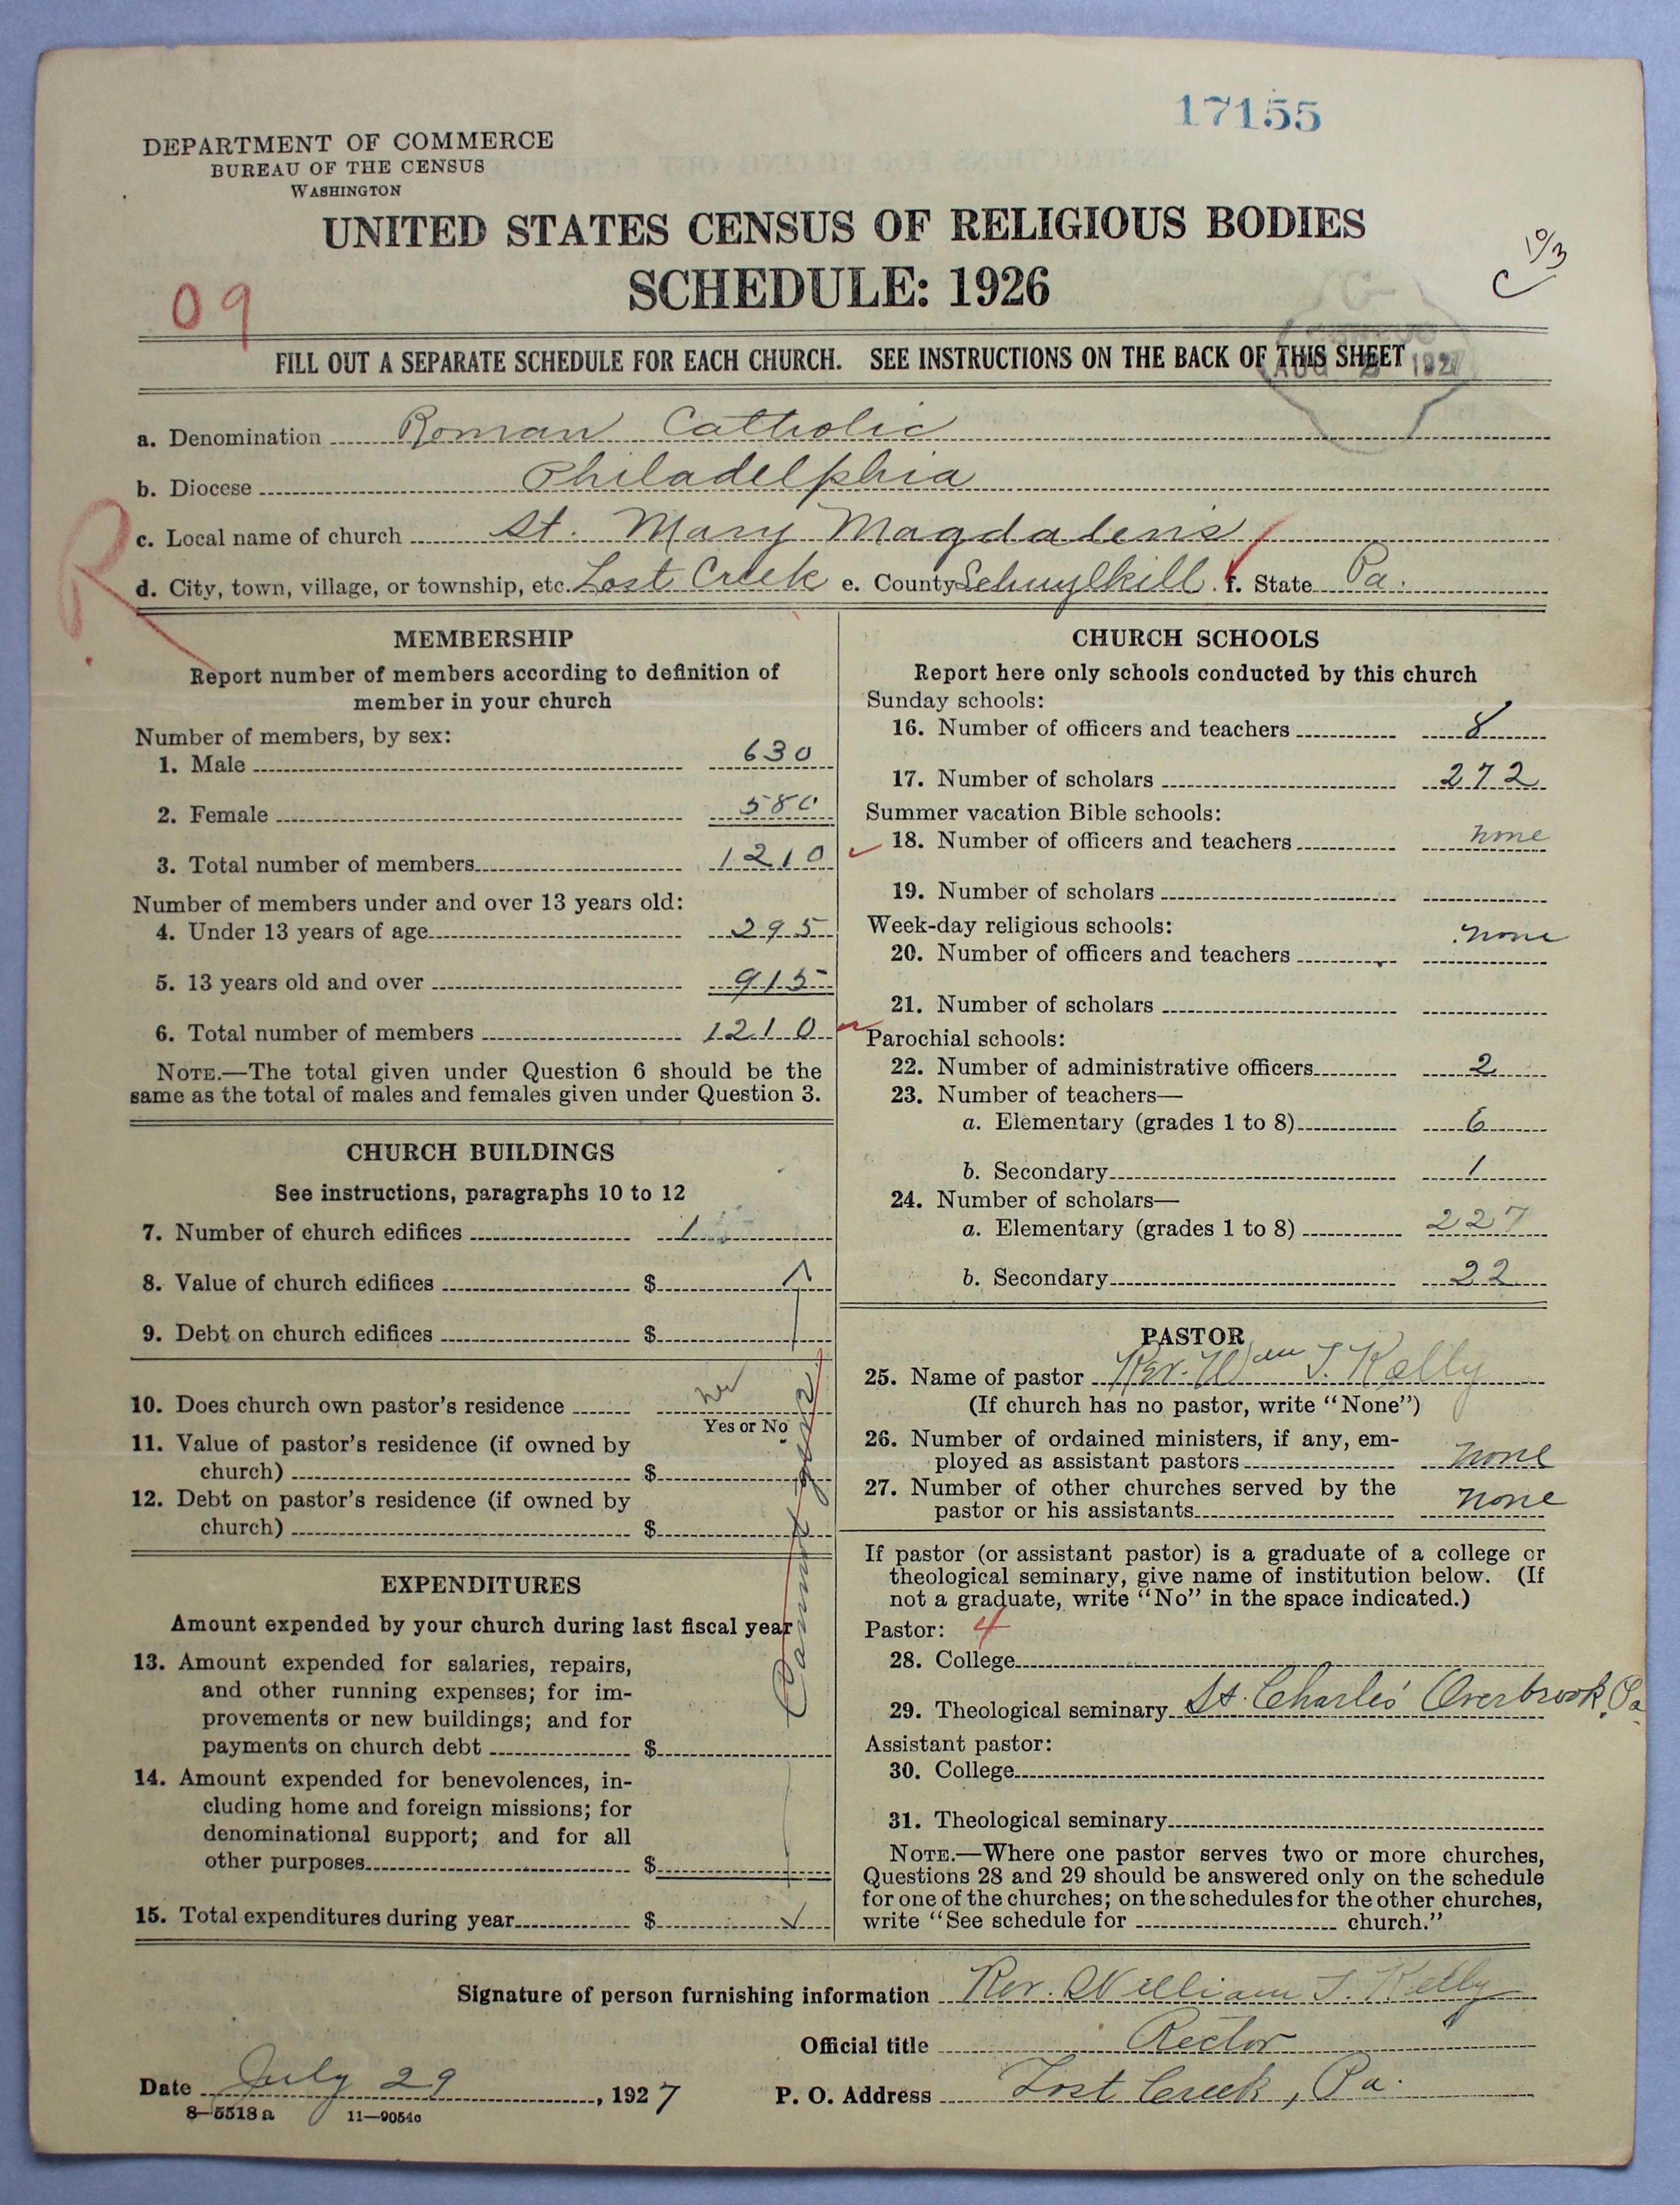 17155
DEPARTMENT OF COMMERCE
BUREAU OF THE CENSUS
WASHINGTON
UNITED STATES CENSUS OF RELIGIOUS BODIES
SCHEDULE: 1926
09
FILL OUT A SEPARATE SCHEDULE FOR EACH CHURCH. SEE INSTRUCTIONS ON THE BACK OF THIS SHEET
AUG 1927
a. Denomination Roman Catholic
b. Diocese Philadelphia
R
c. Local name of church St. Mary Magdalen's
d. City, town, village, or township, etc. Lost Creek e. County Schuylkill f. State Pa.
MEMBERSHIP
Report number of members according to definition of
member in your church
Number of members, by sex:
1. Male 630
2. Female 580
3. Total number of members 1210
Number of members under and over 13 years old:
4. Under 13 years of age 295
5. 13 years old and over 915
6. Total number of members 1210
NOTE.—The total given under Question 6 should be the
same as the total of males and females given under Question 3.
CHURCH BUILDINGS
See instructions, paragraphs 10 to 12
7. Number of church edifices 1
8. Value of church edifices $
9. Debt on church edifices $
10. Does church own pastor's residence
Yes or No
11. Value of pastor's residence (if owned by
church) $
12. Debt on pastor's residence (if owned by
church) $
Cannot
EXPENDITURES
Amount expended by your church during last fiscal year
13. Amount expended for salaries, repairs,
and other running expenses; for im-
provements or new buildings; and for
payments on church debt $
14. Amount expended for benevolences, in-
cluding home and foreign missions; for
denominational support; and for all
other purposes $
15. Total expenditures during year $
CHURCH SCHOOLS
Report here only schools conducted by this church
Sunday schools:
16. Number of officers and teachers 8
17. Number of scholars 272
Summer vacation Bible schools:
18. Number of officers and teachers none
19. Number of scholars
Week-day religious schools:
none
20. Number of officers and teachers
21. Number of scholars
Parochial schools:
22. Number of administrative officers 2
23. Number of teachers—
a. Elementary (grades 1 to 8) 6
b. Secondary 1
24. Number of scholars—
a. Elementary (grades 1 to 8) 227
b. Secondary 22
PASTOR
25. Name of pastor Rev. Wm J. Kelly
(If church has no pastor, write "None")
26. Number of ordained ministers, if any, em-
ployed as assistant pastors none
27. Number of other churches served by the
pastor or his assistants none
If pastor (or assistant pastor) is a graduate of a college or
theological seminary, give name of institution below. (If
not a graduate, write "No" in the space indicated.)
Pastor: 4
28. College
29. Theological seminary St. Charles' Overbrook, Pa.
Assistant pastor:
30. College
31. Theological seminary
NOTE.—Where one pastor serves two or more churches,
Questions 28 and 29 should be answered only on the schedule
for one of the churches; on the schedules for the other churches,
write "See schedule for church."
Signature of person furnishing information Rev. William J. Kelly
Official title Rector
Date July 29, 1927 P. O. Address Lost Creek, Pa.
8—5518a 11—9054c